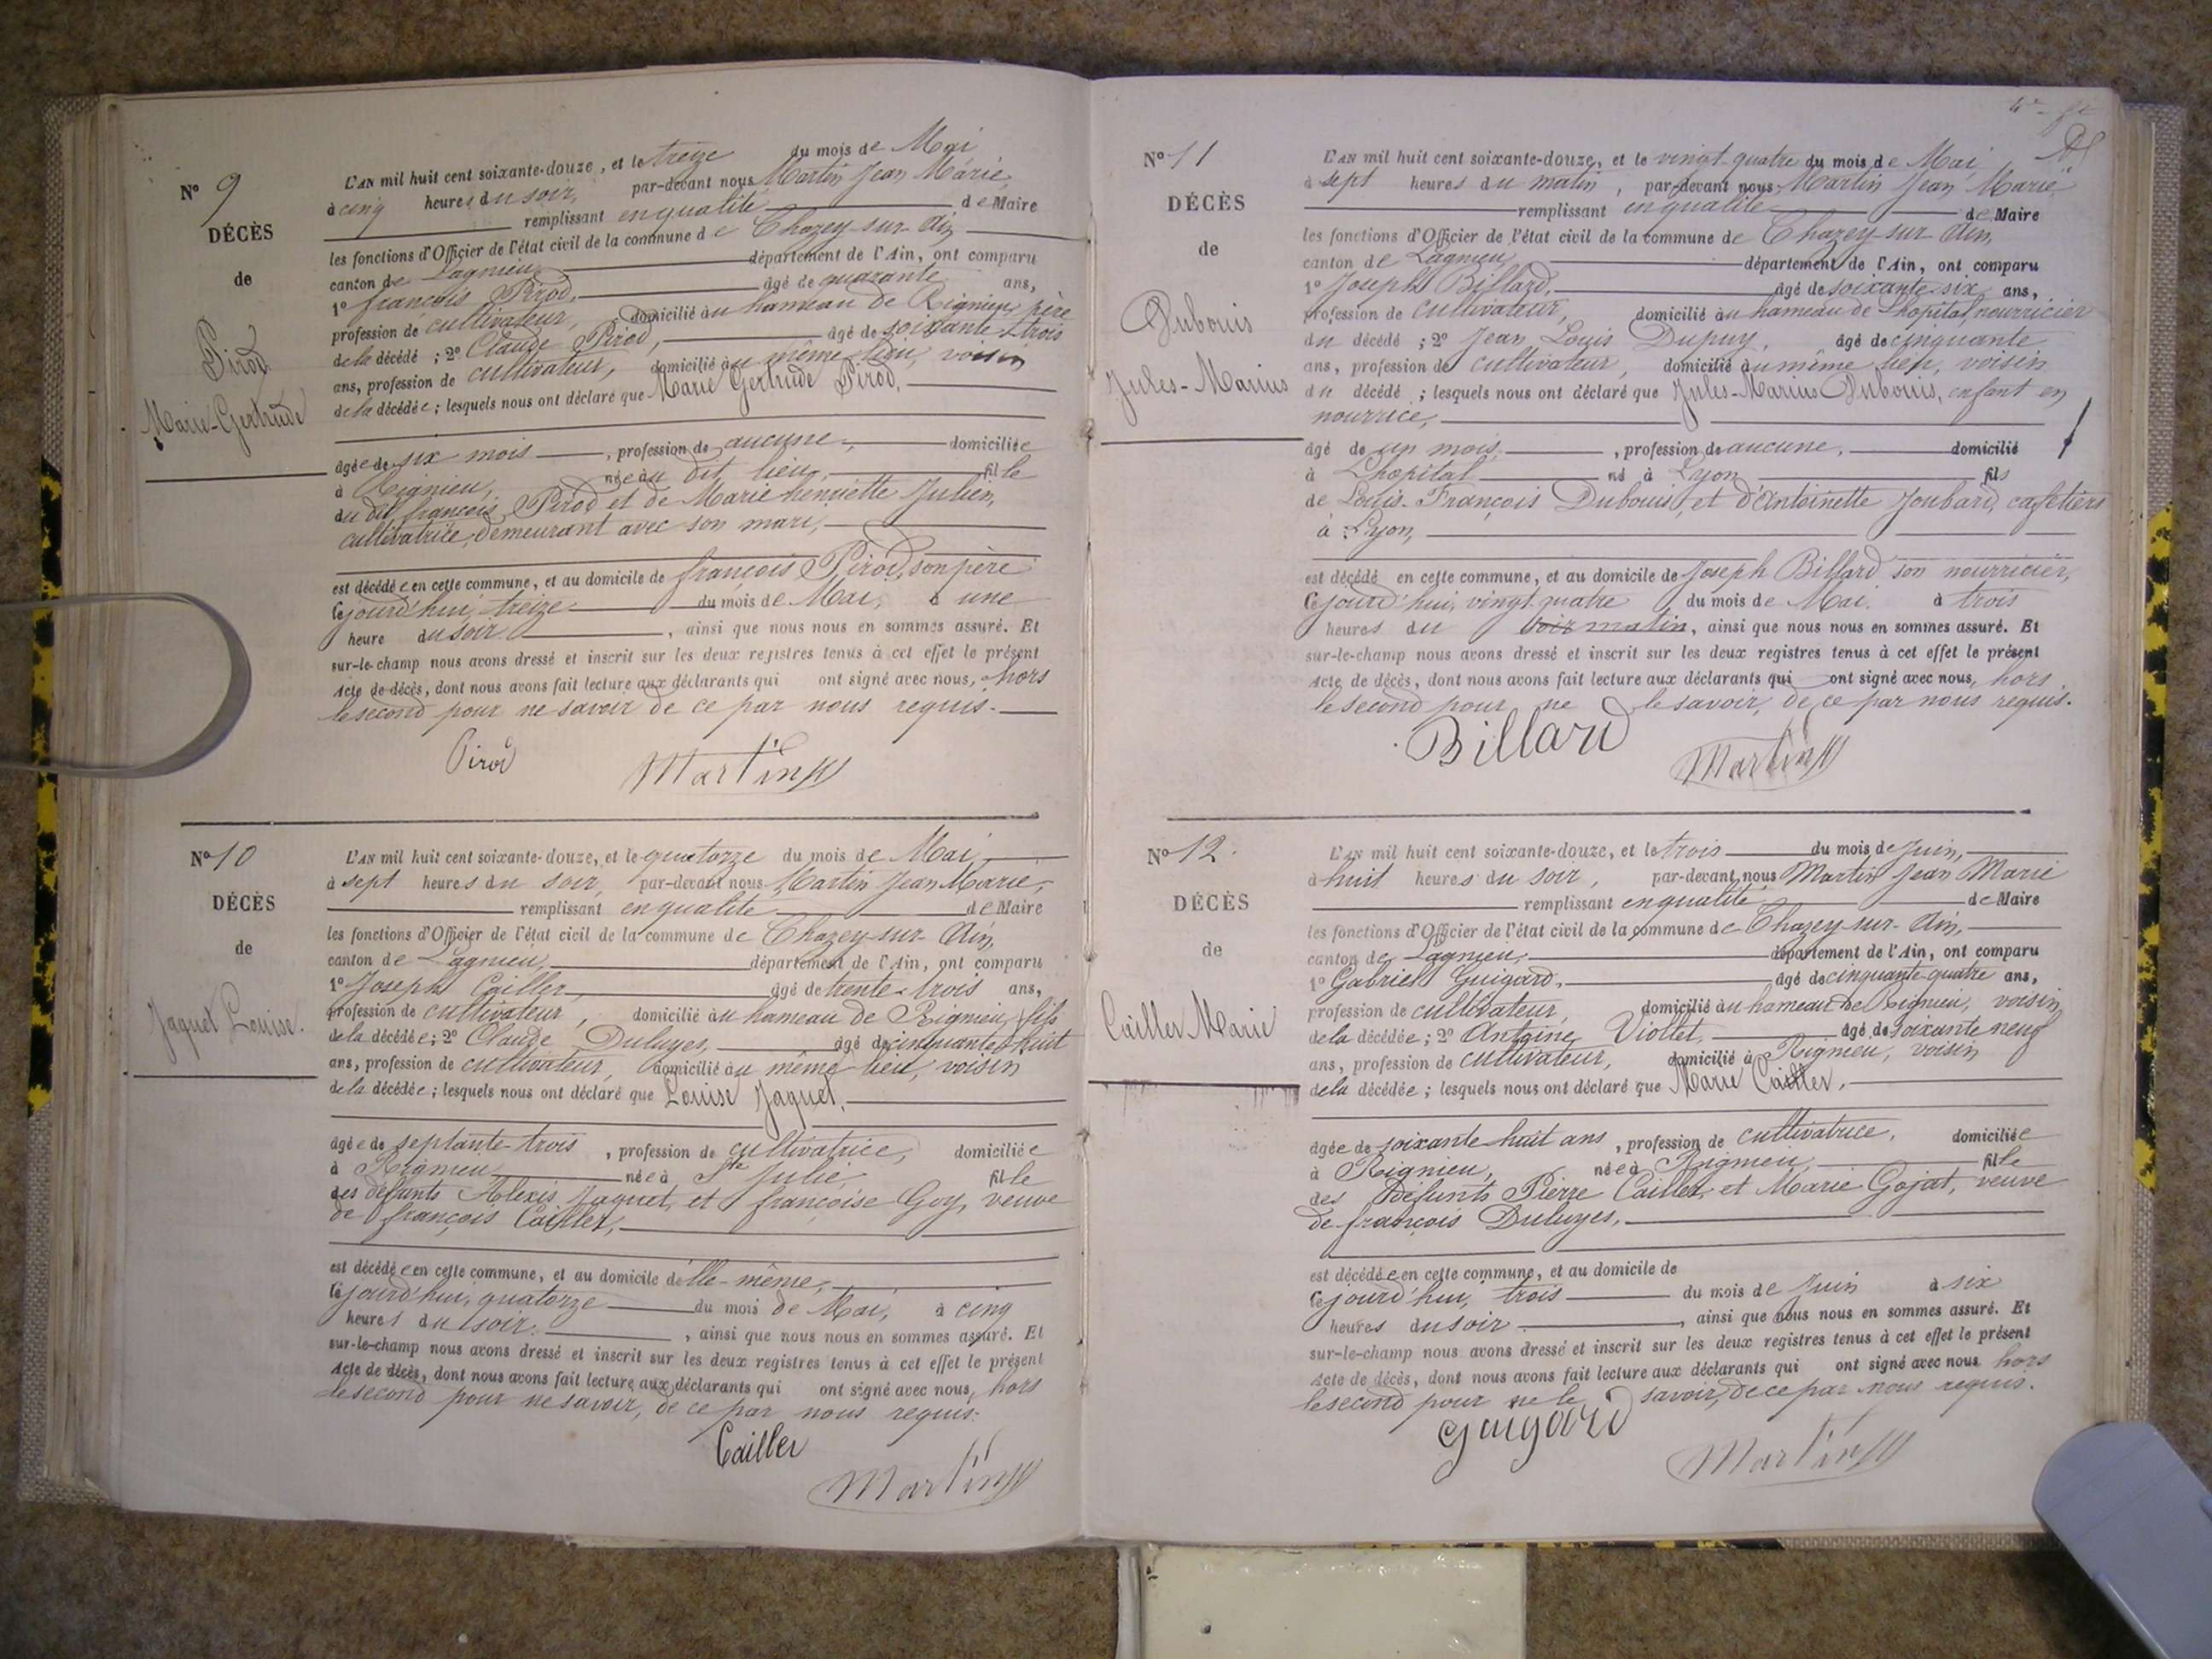 N° 9
DÉCÈS
de
Pirod
Marie-Gertrude
L'AN mil huit cent soixante-douze, et le treize du mois de Mai
à cinq heures du soir, par-devant nous Martin Jean Marie,
remplissant en qualité de Maire
les fonctions d'Officier de l'état civil de la commune de Chazey-sur-Ain
canton de Lagnieu, département de l'Ain, ont comparu
1° françois Pirod, âgé de quarante ans,
profession de cultivateur, domicilié au hameau de Rignieu, père
de la décédé ; 2° Claude Pirod, âgé de soixante-trois
ans, profession de cultivateur, domicilié au même lieu, voisin
de la décédée ; lesquels nous ont déclaré que Marie Gertrude Pirod,
âgée de six mois, profession de aucune, domiciliée
à Rignieu, née au dit lieu, fille
du dit françois Pirod et de Marie henriette Julien,
cultivatrice, demeurant avec son mari,
est décédée en cette commune, et au domicile de françois Pirod, son père
Cejourd'hui, treize du mois de Mai, à une
heure du soir, ainsi que nous nous en sommes assuré. Et
sur-le-champ nous avons dressé et inscrit sur les deux registres tenus à cet effet le présent
Acte de décès, dont nous avons fait lecture aux déclarants qui ont signé avec nous, hors
le second pour ne savoir de ce par nous requis.
Pirod Martin
N° 10
DÉCÈS
de
Jaquet Louise.
L'AN mil huit cent soixante-douze, et le quatorze du mois de Mai,
à sept heures du soir, par-devant nous Martin Jean Marie,
remplissant en qualité de Maire
les fonctions d'Officier de l'état civil de la commune de Chazey-sur-Ain,
canton de Lagnieu, département de l'Ain, ont comparu
1° Joseph Cailler, âgé de trente-trois ans,
profession de cultivateur, domicilié au hameau de Rignieu, fils
de la décédée ; 2° Claude Duluyes, âgé de cinquante huit
ans, profession de cultivateur, domicilié au même lieu, voisin
de la décédée ; lesquels nous ont déclaré que Louise Jaquet,
âgée de septante-trois, profession de cultivatrice, domiciliée
à Rignieu née à Ste Julie, fille
des défunts Alexis Jaquet, et françoise Goy, veuve
de françois Cailler,
est décédée en cette commune, et au domicile d'elle-même,
Cejourd'hui, quatorze du mois de Mai, à cinq
heures du soir, ainsi que nous nous en sommes assuré. Et
sur-le-champ nous avons dressé et inscrit sur les deux registres tenus à cet effet le présent
Acte de décès, dont nous avons fait lecture aux déclarants qui ont signé avec nous, hors
le second pour ne savoir, de ce par nous requis.
Cailler
Martin
N° 11
DÉCÈS
de
Dubouis
Jules-Marius
L'AN mil huit cent soixante-douze, et le vingt-quatre du mois de Mai,
à sept heures du matin, par-devant nous Martin Jean Marie
remplissant en qualité de Maire
les fonctions d'Officier de l'état civil de la commune de Chazey-sur-Ain,
canton de Lagnieu département de l'Ain, ont comparu
1° Joseph Billard, âgé de soixante-six ans,
profession de cultivateur, domicilié au hameau de Lhopital, nourricier
du décédé ; 2° Jean Louis Dupuy, âgé de cinquante
ans, profession de cultivateur, domicilié au même lieu, voisin
du décédé ; lesquels nous ont déclaré que Jules-Marius Dubouis, enfant en
nourrice,
âgé de un mois, profession de aucune, domicilié
à Lhopital né à Lyon fils
de Louis-François Dubouis, et d'Antoinette Joubard, cafetiers
à Lyon,
est décédé en cette commune, et au domicile de Joseph Billard son nourricier,
Cejourd'hui, vingt-quatre du mois de Mai. à trois
heures du soir matin, ainsi que nous nous en sommes assuré. Et
sur-le-champ nous avons dressé et inscrit sur les deux registres tenus à cet effet le présent
Acte de décès, dont nous avons fait lecture aux déclarants qui ont signé avec nous, hors
le second pour ne le savoir, de ce par nous requis.
Billard
Martin
N° 12.
DÉCÈS
de
Cailler Marie
L'AN mil huit cent soixante-douze, et le trois du mois de Juin,
à huit heures du soir, par-devant nous Martin Jean Marie
remplissant en qualité de Maire
les fonctions d'Officier de l'état civil de la commune de Chazey-sur-Ain,
canton de Lagnieu, département de l'Ain, ont comparu
1° Gabriel Guigard, âgé de cinquante-quatre ans,
profession de cultivateur, domicilié au hameau de Rignieu, voisin
de la décédée ; 2° Antoine Viollet, âgé de soixante neuf
ans, profession de cultivateur, domicilié à Rignieu, voisin
de la décédée ; lesquels nous ont déclaré que Marie Cailler,
âgée de soixante-huit ans, profession de cultivatrice, domiciliée
à Rignieu, née à Rignieu, fille
des Défunts Pierre Cailler, et Marie Gojat, veuve
de françois Duluyes,
est décédée en cette commune, et au domicile de
Cejourd'hui, trois du mois de Juin à six
heures du soir, ainsi que nous nous en sommes assuré. Et
sur-le-champ nous avons dressé et inscrit sur les deux registres tenus à cet effet le présent
Acte de décès, dont nous avons fait lecture aux déclarants qui ont signé avec nous hors
le second pour ne le savoir, de ce par nous requis.
Guigard
Martin